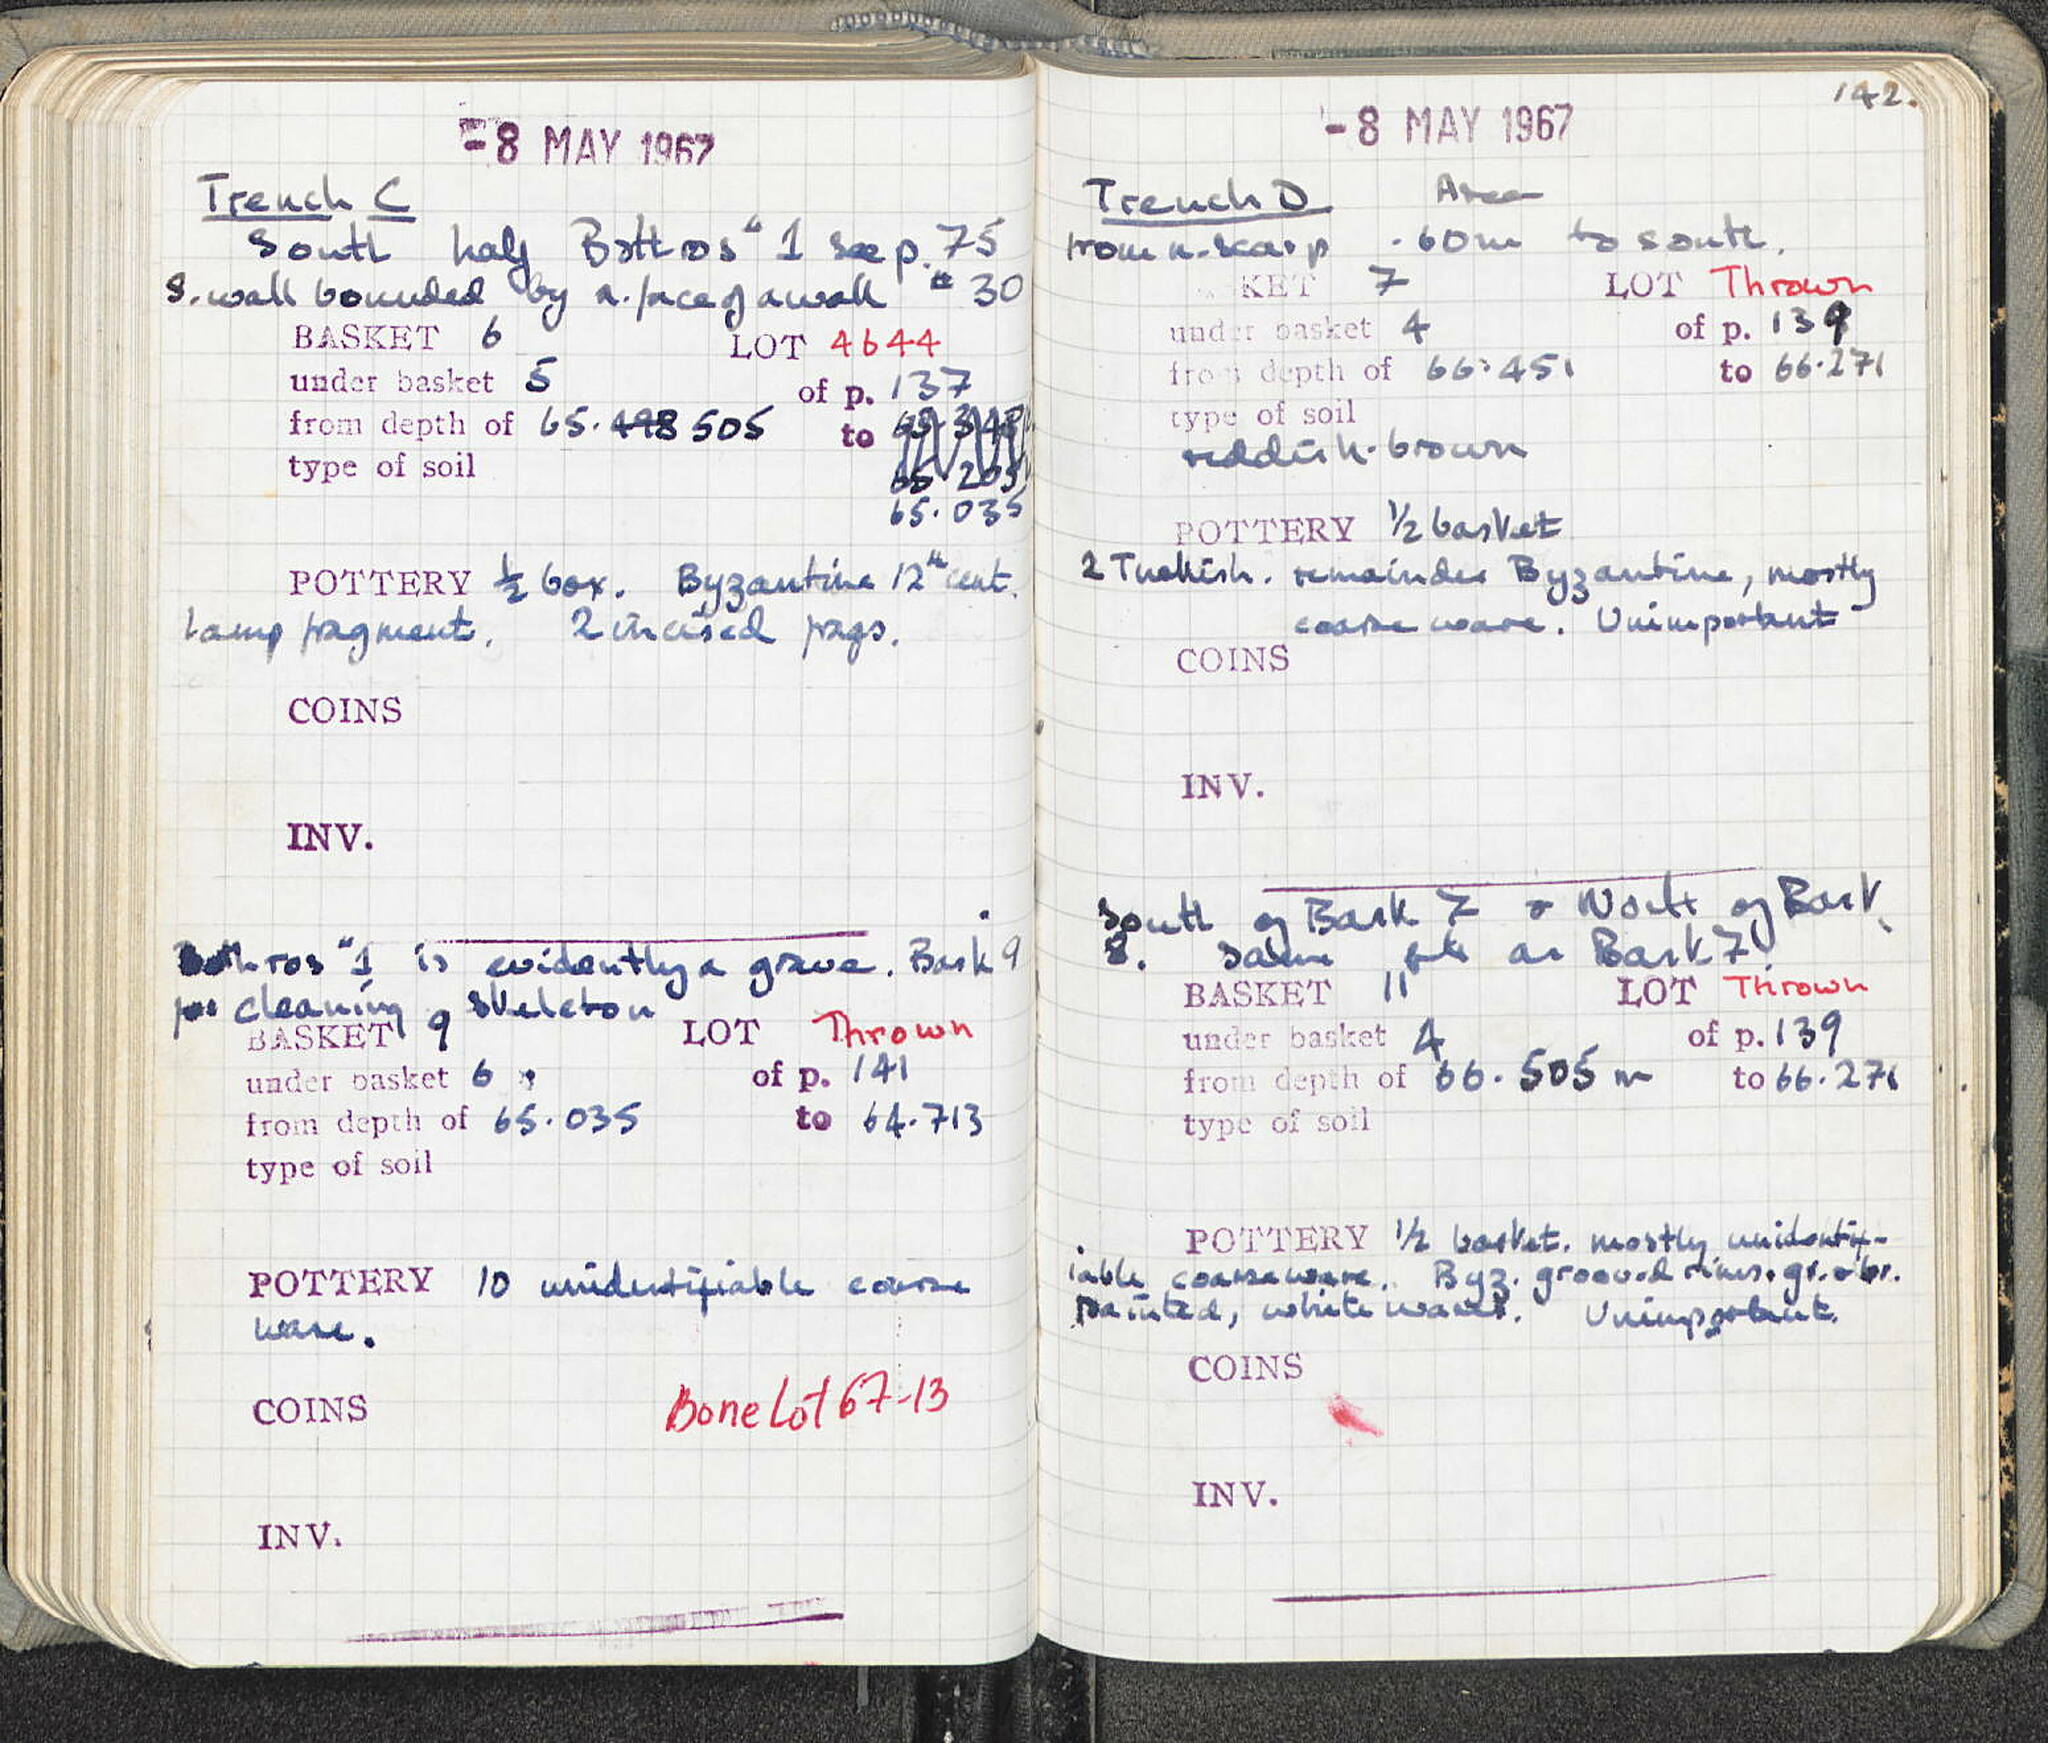 -8 MAY 1967
Trench C
South half Bothros "1 see p. 75
S. wall bounded by n. face of a wall # 30
BASKET 6 LOT 4644
under basket 5 of p. 137
from depth of 65.498 505 to 65.348
type of soil 65.205
65.035
POTTERY ½ box. Byzantine 12th cent.
Lamp fragment. 2 incised frags.
COINS
INV.
Bothros "1 is evidently a grave. Bask 9
for cleaning skeleton
BASKET 9 LOT Thrown
under basket 6 of p. 141
from depth of 65.035 to 64.713
type of soil
POTTERY 10 unidentifiable coarse
ware.
COINS Bone Lot 67-13
INV.
142.
-8 MAY 1967
Trench D Area
from n. scarp .60m to south.
BASKET 7 LOT Thrown
under basket 4 of p. 139
from depth of 66.451 to 66.271
type of soil
reddish-brown
POTTERY 1/2 basket
2 Turkish. remainder Byzantine, mostly
coarse ware. Unimportant
COINS
INV.
South of Bask 7 & North of Bask
8. Same as Bask 7.
BASKET 11 LOT Thrown
under basket 4 of p. 139
from depth of 66.505 m to 66.271
type of soil
POTTERY 1/2 basket. mostly unidentif-
iable coarse ware. Byz. grooved rims. gr. & br.
painted, white ware. Unimportant.
COINS
INV.